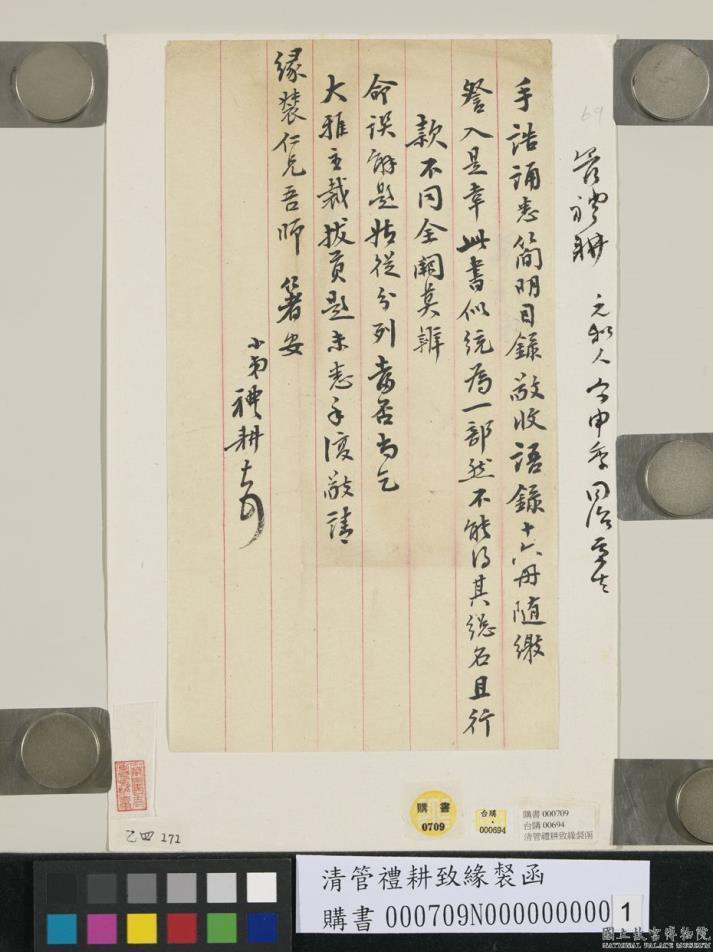 手誥誦悉簡明目錄敬收語錄十六冊隨繳
詧入是幸此書似統為一部然不能得其總名且行
款不同全闕莫辨
命誤籤題姑從分列當否尚乞
大雅主裁拔貢題未悉手復敬請
緣裝仁兄吾師 箸安
小弟禮耕頓首
管禮耕 元和人
69
乙四 171
購書
0709
台購
000694
購書 000709
台購 00694
清管禮耕致緣裻函
清管禮耕致緣裻函
購書 000709N000000000 1
國立故宮博物院
NATIONAL PALACE MUSEUM